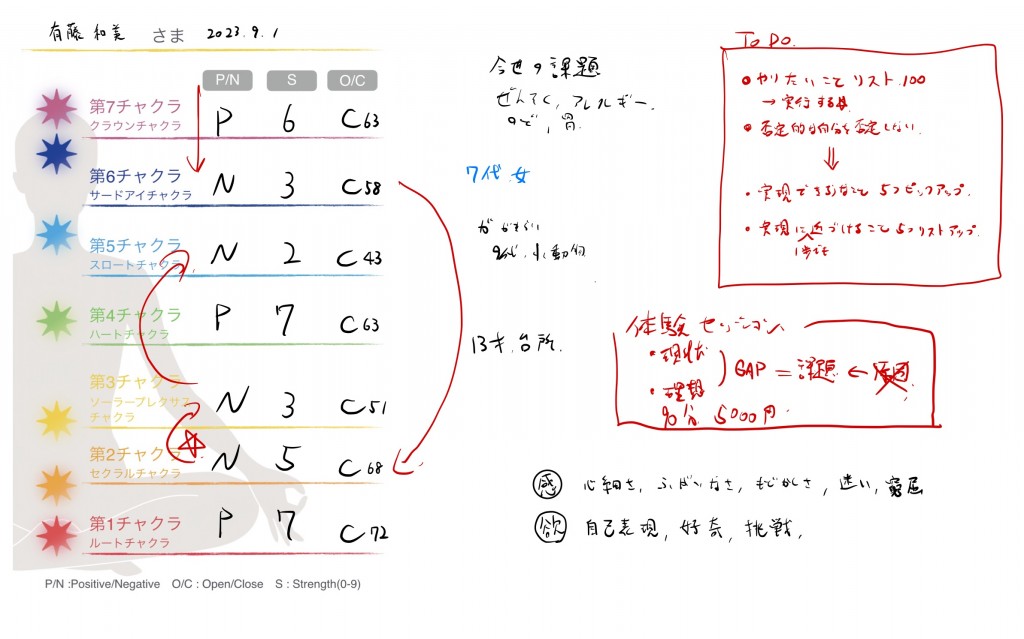 有藤 和美 さま 2023.9.1
P/N S O/C
第7チャクラ
クラウンチャクラ
P 6 C63
第6チャクラ
サードアイチャクラ
N 3 C58
第5チャクラ
スロートチャクラ
N 2 C43
第4チャクラ
ハートチャクラ
P 7 C63
第3チャクラ
ソーラープレクサス
チャクラ
N 3 C51
第2チャクラ
セクラルチャクラ
N 5 C68
第1チャクラ
ルートチャクラ
P 7 C72
P/N :Positive/Negative O/C : Open/Close S : Strength(0-9)
今世の課題
ぜんそく, アレルギー.
のど, 胃.
7代 女
小動物
13才. 台所.
感 心細さ, ふがいなさ, もどかしさ, 迷い, 窮屈
欲 自己表現, 好奇, 挑戦,
To Do.
・やりたいこと リスト. 100
→ 実行する
・否定的な自分を否定しない.
⇓
・実現できそうなこと 5つピックアップ.
・実現に近づけること 5つリストアップ.
1歩でも
体験 セッション
・現状
・理想
GAP = 課題 ← 原因
90分 5000円